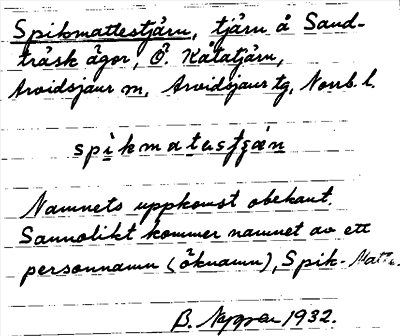 Spikmattestjärn, tjärn å Sand-
träsk ägor, Ö. Kåtatjärn,
Arvidsjaur m, Arvidsjaur tg, Norrb. l.
spikmatastʃæn
Namnets uppkomst obekant.
Sannolikt kommer namnet av ett
personnamn (öknamn), Spik-Matte.
1932.